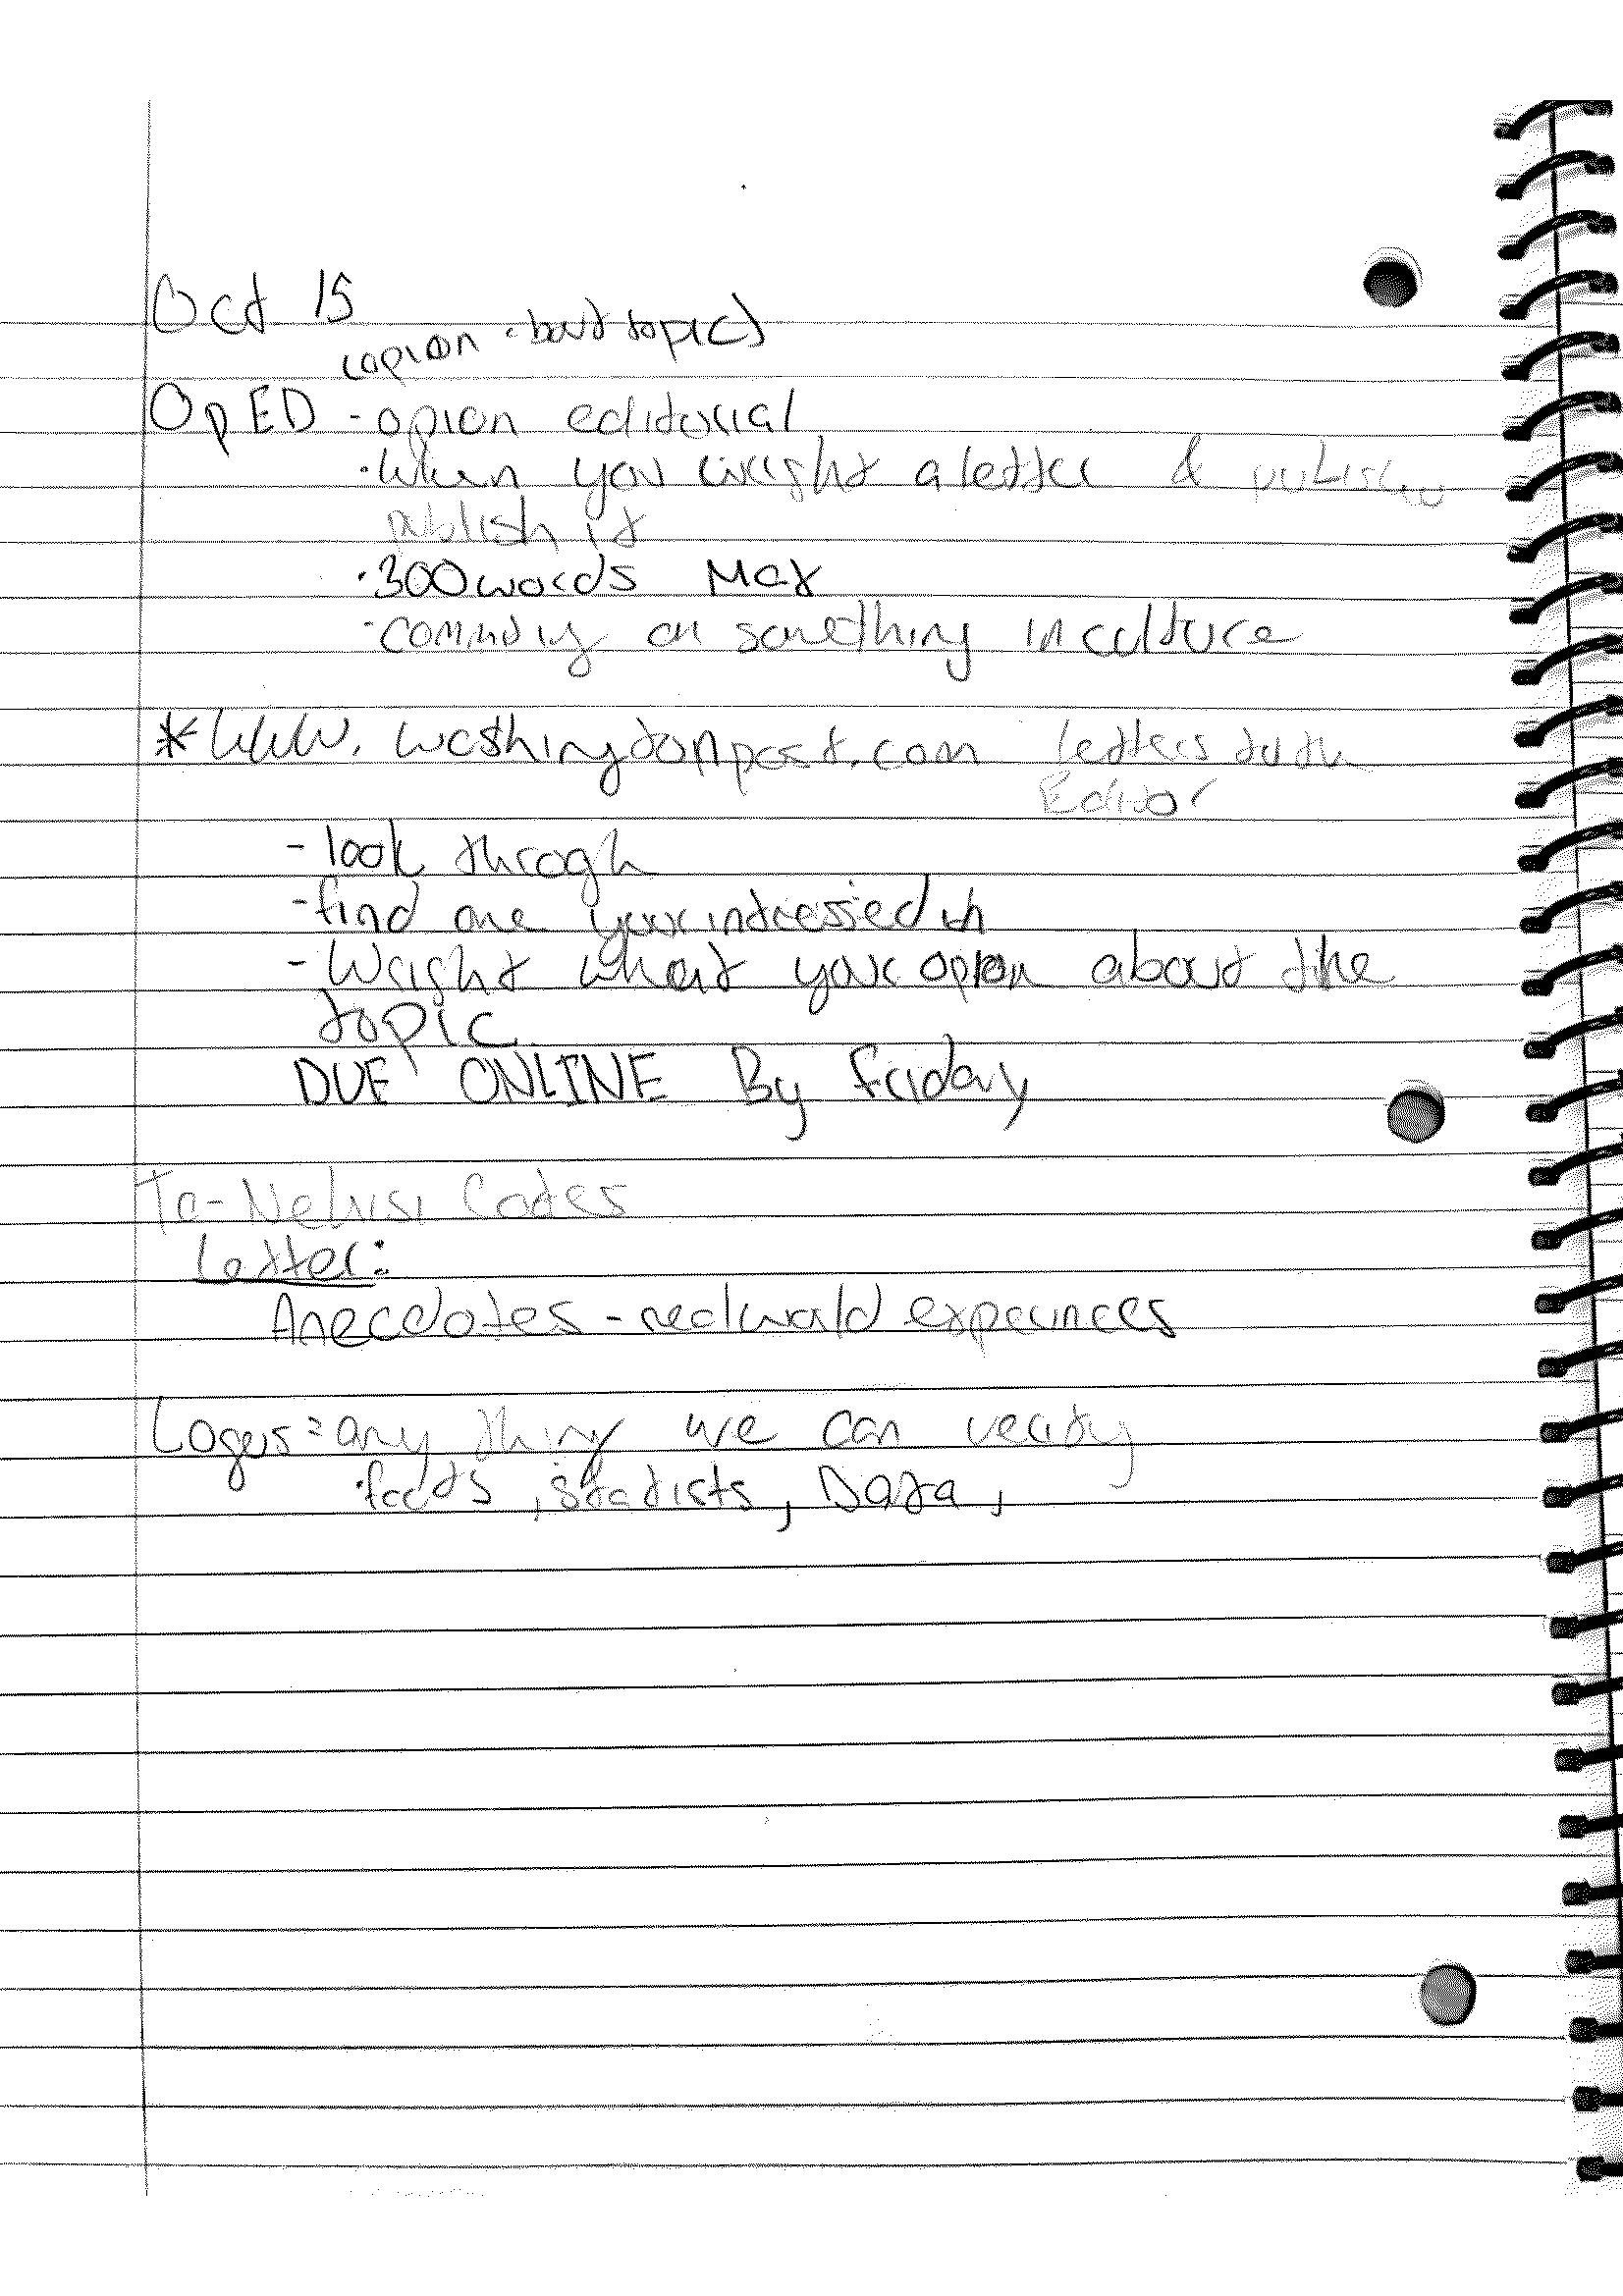 Oct 15
(opion - bout topic)
OpED - opion editorial
· when you wright a letter &
publish it
· 300 words Max
· commnting on something in culture
* WWW. washingtonpost.com letters to the
Editor
- look throgh
- find one your intressed in
- Wright what your opion about the
topic
DUE ONLINE By Friday
Ta-Nehisi Coates
Letter:
Anecdotes - real world expeunces
Logus = any thing we can verify
· facts, statists, Data,